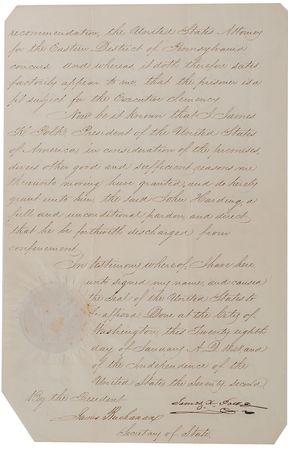 recommendation, the United States Attorney
for the Eastern District of Pennsylvania
concurs. And whereas, it doth therefore satis
factorily appear to me, that the prisoner is a
fit subject for the Executive Clemency
Now be it known that I James
K. Polk, President of the United States
of America in consideration of the premises
divers other good and sufficient reasons me
thereunto moving have granted, and do hereby
grant unto him, the said John Harding, a
full and unconditional pardon and direct
that he be forthwith discharged from
confinement.
In testimony whereof, I have here
unto signed my name, and caused
the Seal of the United States to
affixed Done at the City of
Washington, this Twenty eighth
day of January A.D. and
of the Independence of the
United States the Seventy second
By the President
James K Polk
James Buchanan
Secretary of State